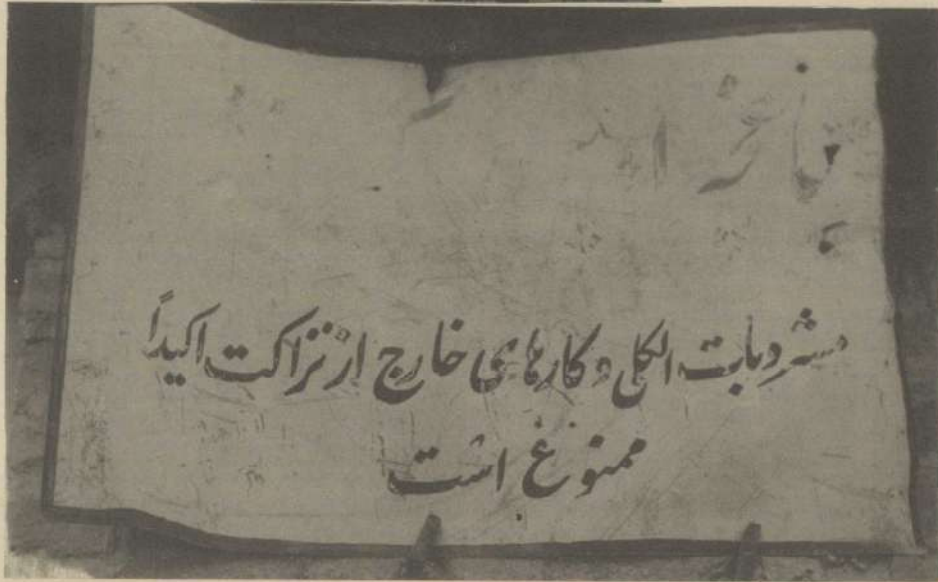 مشروبات الکلی و کارهای خارج از نزاکت اکیداً
ممنوع است